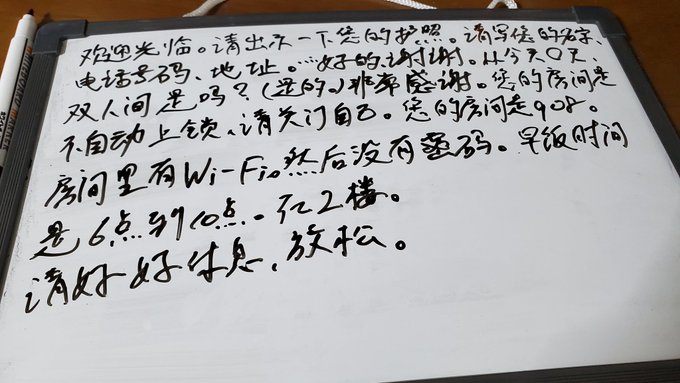 欢迎光临。请出示一下您的护照。请写您的名字、
电话号码、地址。…好的、谢谢。从今天〇天、
双人间是吗？(是的。)非常感谢。您的房间是
不自动上锁、请关门自己。您的房间是908。
房间里有Wi-Fi。然后没有密码。早饭时间
是6点到10点。在2楼。
请好好休息、放松。